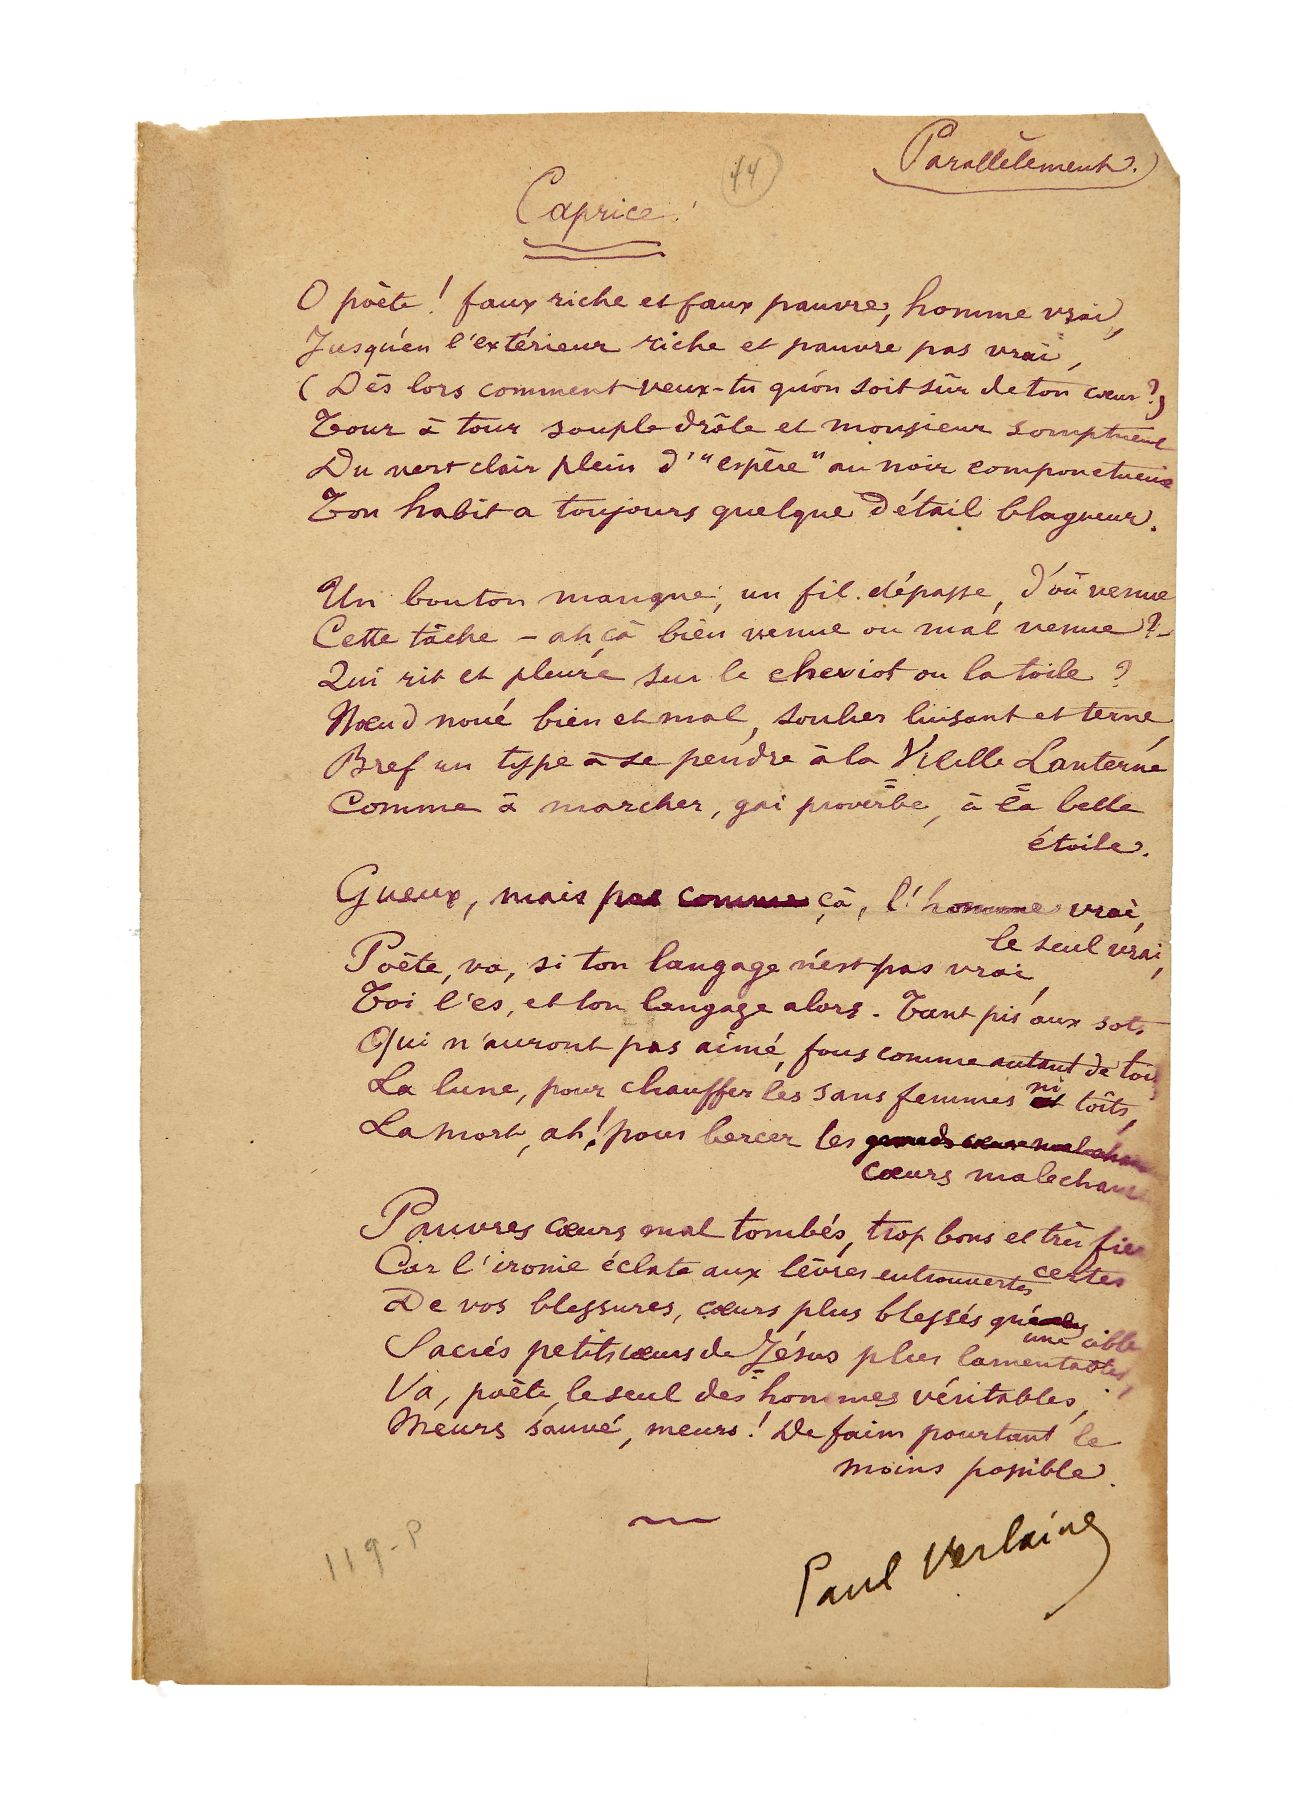 Parallèlement.
44
Caprice.
O poète ! faux riche et faux pauvre, homme vrai,
Jusqu'en l'extérieur riche et pauvre pas vrai,
(Dès lors comment veux-tu qu'on soit sûr de ton cœur ?)
Tour à tour souple drôle et monsieur somptueux
Du vert clair plein d'"espère" au noir componctueux
Ton habit a toujours quelque détail blagueur.
Un bouton manque, un fil dépasse, d'où venue
Cette tâche – ah çà bien venue ou mal venue ? –
Qui rit et pleure sur le cheviot ou la toile ?
Nœud noué bien et mal, soulier luisant et terne,
Bref un type à se pendre à la Vieille Lanterne
Comme à marcher, gai proverbe, à la belle
étoile.
Gueux, mais pas comme çà, l'homme vrai,
le seul vrai,
Poète, va, si ton langage n'est pas vrai,
Toi l'es, et ton langage alors. Tant pis aux sots
Qui n'auront pas aimé, fous comme autant de tois,
La lune, pour chauffer les sans femmes ni toîts,
La mort, ah ! pour bercer les
cœurs malechanc
Pauvres cœurs mal tombés, trop bons et très fiers
certes
Car l'ironie éclate aux lèvres entrouvertes
De vos blessures, cœurs plus blessés qu'
une cible
Sacrés petits cœurs de Jésus plus lamentables,
Va, poète, le seul des hommes véritables,
Meurs sauvé, meurs ! De faim pourtant le
moins possible.
Paul Verlaine
119-P